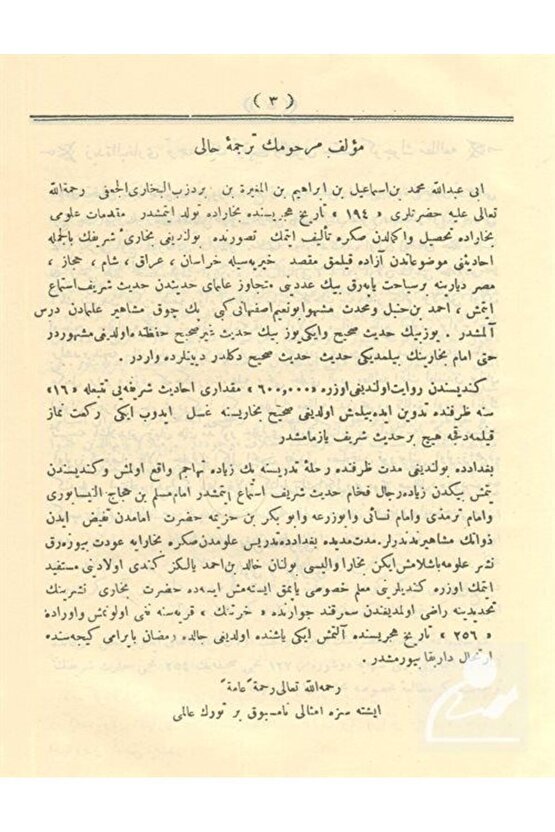 ( ٣ )
مؤلف مرحومك ترجمۀ حالی
ابی عبدالله محمد بن اسماعیل بن ابراهیم بن المغیرة بن بردزبه البخاری الجعفی رحمة الله
تعالی علیه حضرتلری « ١٩٤ » تاریخ هجریسنده بخاراده تولد ایتمشدر مقدمات علومی
بخاراده تحصیل واكمالدن صكره تألیف ایتمك تصورنده بولندیغی بخارئ شریفك بالجمله
احادیثنی موضوعاتدن آزاده قیلمق مقصد خیریه‌سیله خراسان ، عراق ، شام ، حجاز ،
مصر دیارینه برسیاحت یاپه‌رق بیك عددینی متجاوز علمای حدیثدن حدیث شریف استماع
ایتمش ، احمد بن حنبل ومحدث مشهور ابونعیم اصفهانی كبی بك چوق مشاهیر علمادن درس
آلمشدر . یوزبیك حدیث صحیح وایكی یوز بیك حدیث غیر صحیح حفظنده اولدیغی مشهوردر
حتی امام بخارینك بیلمدیكی حدیث حدیث صحیح دكلدر دینلرده واردر .
كندیسندن روایت اولندیغی اوزره «٦٠٠,٠٠٠» مقداری احادیث شریفه‌یی تتبعله «١٦»
سنه ظرفنده تدوین ایده‌بیلمش اولدیغی صحیح بخاریسنه غسل ایدوب ایكی ركعت نماز
قیلمه‌دقجه هیچ برحدیث شریف یازمامشدر
بغدادده بولندیغی مدت ظرفنده رحلۀ تدریسنه بك زیاده تهاجم واقع اولمش وكندیسندن
یتمش بیكدن زیاده رجال فخام حدیث شریف استماع ایتمشدر امام مسلم بن حجاج النیسابوری
وامام ترمذی وامام نسائی وابوزرعه وابو بكر بن حزیمه حضرت امامدن تفیض ایدن
ذواتك مشاهیرندندرلر . مدت مدیده بغدادده تدریس علومدن صكره بخارایه عودت بیوره‌رق
نشر علومه باشلامش ایكن بخارا والیسی بولنان خالد بن احمد بالكز كندی اولادینی مستفید
ایتمك اوزره كندیلرینی معلم خصوصی یاپمق ایسته‌مش ایسه‌ده حضرت بخاری نشرینك
تحدیدینه راضی اولمدیغندن سمرقند جوارنده « خرتنك » قریه‌سنه نفی اولونمش واوراده
« ٢٥٦ » تاریخ هجریسنده آلتمش ایكی یاشنده اولدیغی حالده رمضان بایرامی كیجه‌سنده
ارتحال داربقا بیورمشدر .
رحمه الله تعالی رحمة ً عامة ً
ایشته سزه امثالی نامسبوق بر تورك عالمی